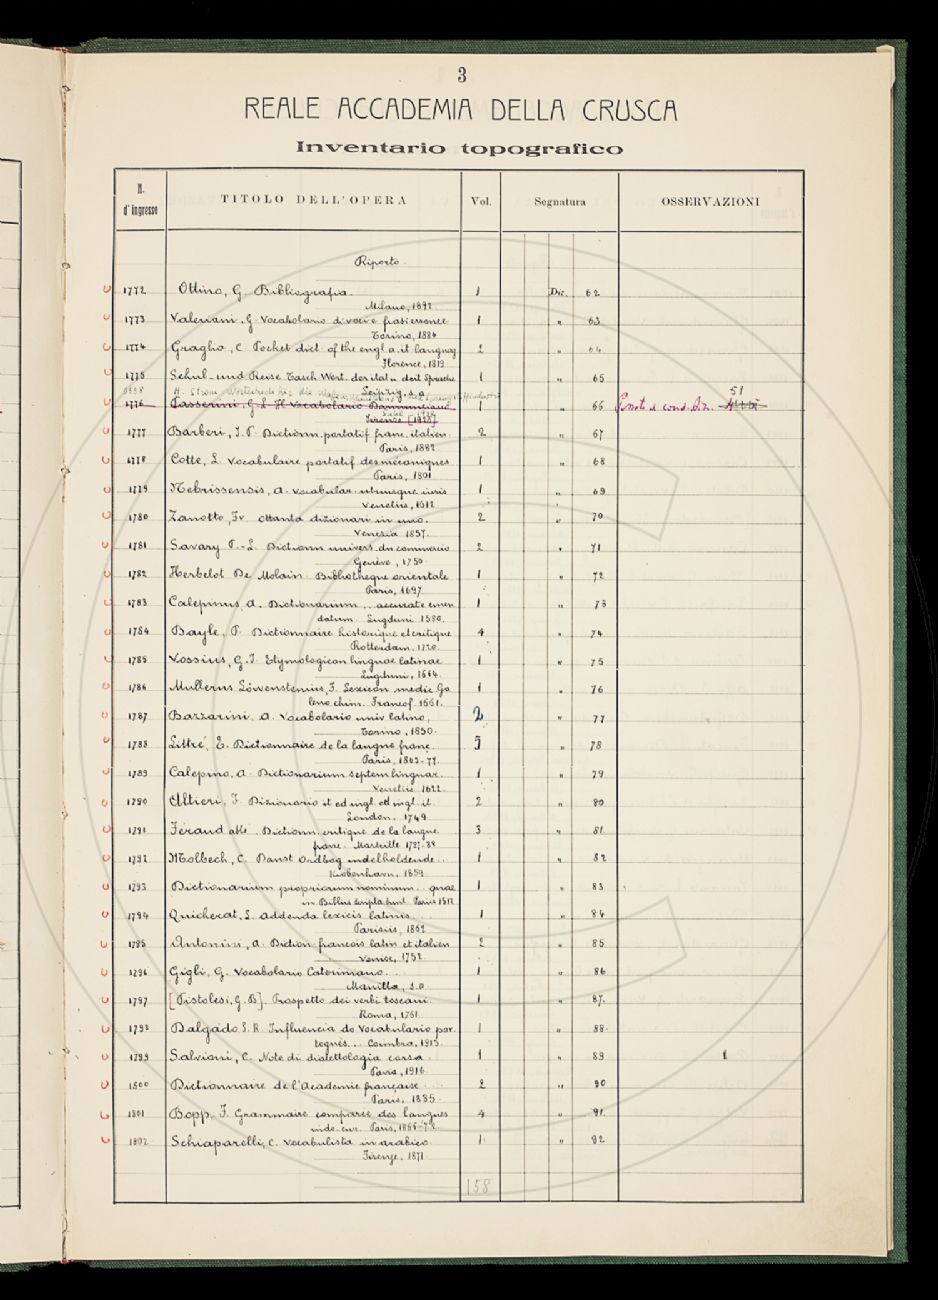 3
REALE ACCADEMIA DELLA CRUSCA
Inventario topografico
N. d'ingresso TITOLO DELL'OPERA Vol. Segnatura OSSERVAZIONI
Riporto
1772 Ottino, G. Bibliografia. 1 Diz. 62
Milano, 1892
1773 Valeriani, G. Vocabolario di voci e frasi erronee 1 " 63
Torino, 1884
1774 Graglia, C. Pocket dict. of the engl. a. it. languag 2 " 64
Florence, 1819
1775 Schul- und Reise Tasch. Wört. der ital. u. deit. Sprache 1 " 65
Leipzig, s.a.
1776 Passerini, G. L. Il Vocabolario Dannunziano 1 " 66 51
Firenze [1928]
1777 Barberi, J. P. Dictionn. portatif franc. italien. 2 " 67
Paris, 1882
1778 Cotte, L. Vocabulaire portatif des mécaniques 1 " 68
Paris, 1801
1779 Nebrissensis, A. Vocabular. utriusque iuris 1 " 69
Venetiis, 1612
1780 Zanotto, Fr. Ottanta dizionari in uno. 2 " 70
Venezia 1857.
1781 Savary P.-L. Dictionn. univers. du commercio 2 " 71
Genève, 1750
1782 Herbelot De Molain. Bibliotheque orientale 1 " 72
Paris, 1697
1783 Calepinus, A. Dictionarium ... accurate emen 1 " 73
datum. Lugduni 1580.
1784 Bayle, P. Dictionnaire historique et critique 4 " 74
Rotterdam, 1720.
1785 Vossius, G. J. Etymologicon linguae latinae 1 " 75
Lugduni, 1664.
1786 Mullerus Löwenstenius, J. Lexicon medic. Ga 1 " 76
leno chim. Francof. 1661.
1787 Bazzarini, A. Vocabolario univ. latino, 2 " 77
Torino, 1850.
1788 Littré, E. Dictionnaire de la langue franç. 5 " 78
Paris, 1863-77.
1789 Calepino, A. Dictionarium septem linguar. 1 " 79
Venetiis 1622.
1790 Altieri, F. Dizionario it. ed ingl. ed ingl. it. 2 " 80
London, 1749
1791 Féraud abb. Dictionn. critique de la langue 3 " 81.
franc. Marseille 1787-88
1792 Molbech, C. Danst Ordbog indelholdende .. 1 " 82
Kiobenhavn, 1859
1793 Dictionarium propriorum nominum .. quae 1 " 83
in Bibliis scripta sunt. Paris 1512
1794 Quicherat, L. Addenda lexicis latinis ... 1 " 84
Parisiis, 1862
1795 Antonini, A. Diction. francois latin et italien 2 " 85
Venise, 1752.
1796 Gigli, G. Vocabolario Cateriniano. .. 1 " 86
Manilla, s.a.
1797 [Pistolesi, G. B]. Prospetto dei verbi toscani. 1 " 87.
Roma, 1761.
1798 Dalgado S. R. Influencia do Vocabulario por. 1 " 88.
togués... Coimbra, 1913.
1799 Salvioni, C. Note di dialettologia corsa. 1 " 89 1
Pavia, 1916
1800 Dictionnaire de l'Academie française .... 2 " 90
Paris, 1835.
1801 Bopp, F. Grammaire comparée des langues 4 " 91.
indo-eur. Paris, 1866-72.
1802 Schiaparelli, C. Vocabulista in arabico. 1 " 92
Firenze, 1871
158